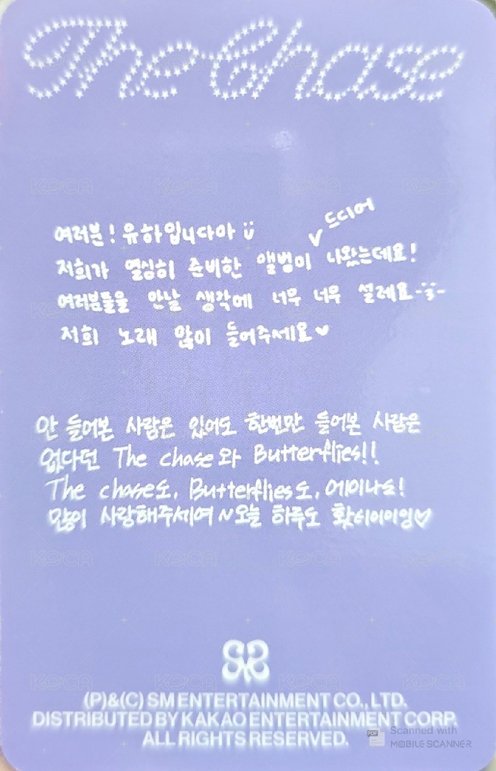 The Chase
여러분! 유하입니다아
저희가 열심히 준비한 앨범이 드디어 나왔는데요!
여러분들을 만날 생각에 너무 너무 설레요
저희 노래 많이 들어주세요♥
안 들어본 사람은 있어도 한번만 들어본 사람은
없다던 The chase와 Butterflies!!
The chase도, Butterflies도, 에이나도!
많이 사랑해주세여~오늘 하루도 홧티이이잉♡
(P)&(C) SM ENTERTAINMENT CO., LTD.
DISTRIBUTED BY KAKAO ENTERTAINMENT CORP.
ALL RIGHTS RESERVED.
PDF Scanned with
MOBILE SCANNER